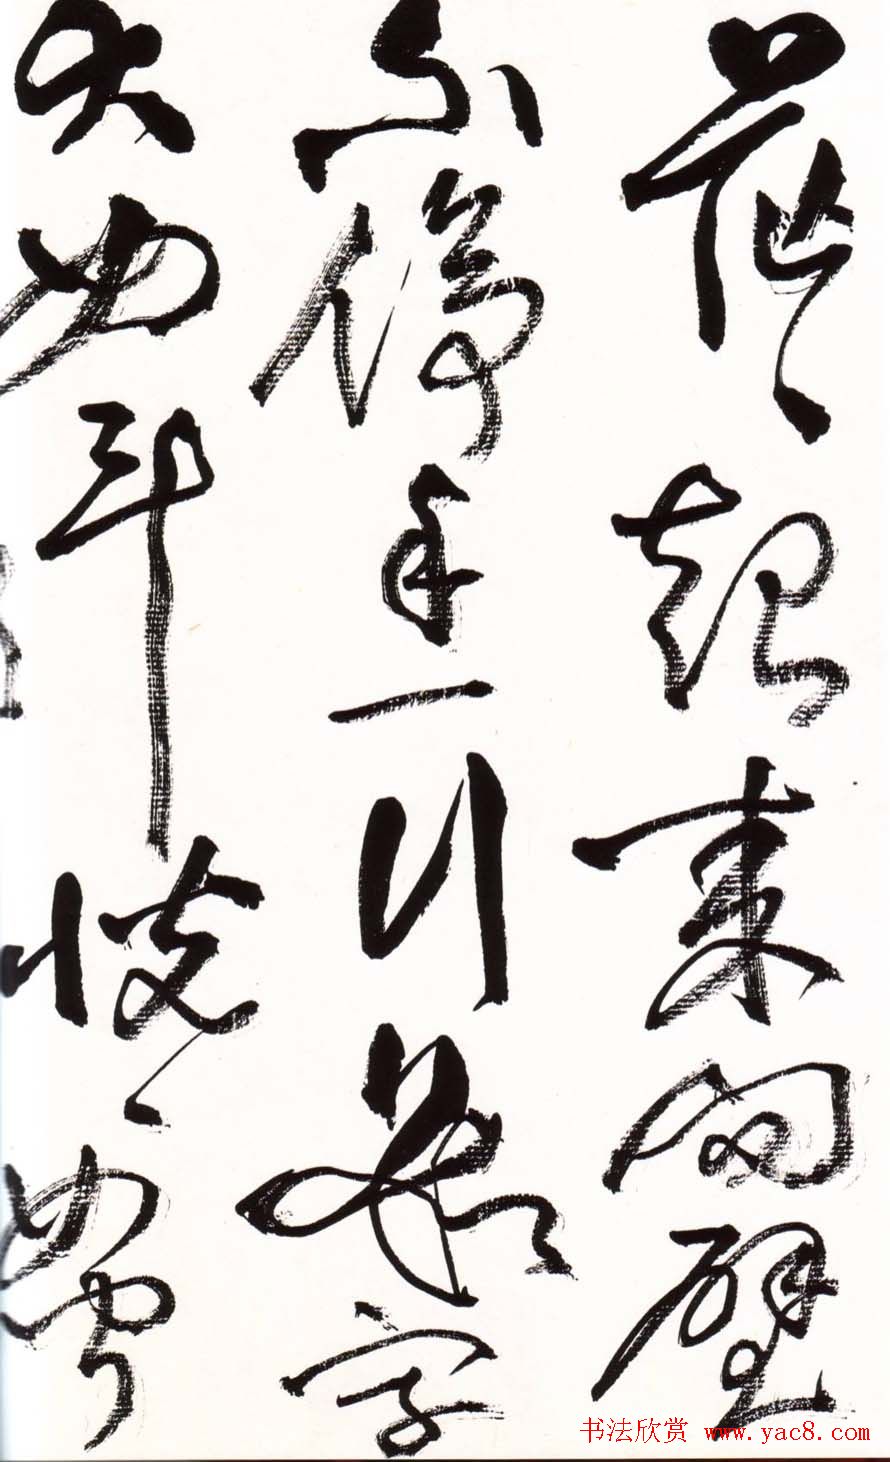 茫茫起來向壁
不停手一行數字
大如斗怳怳如聞
书法欣赏 www.yac8.com